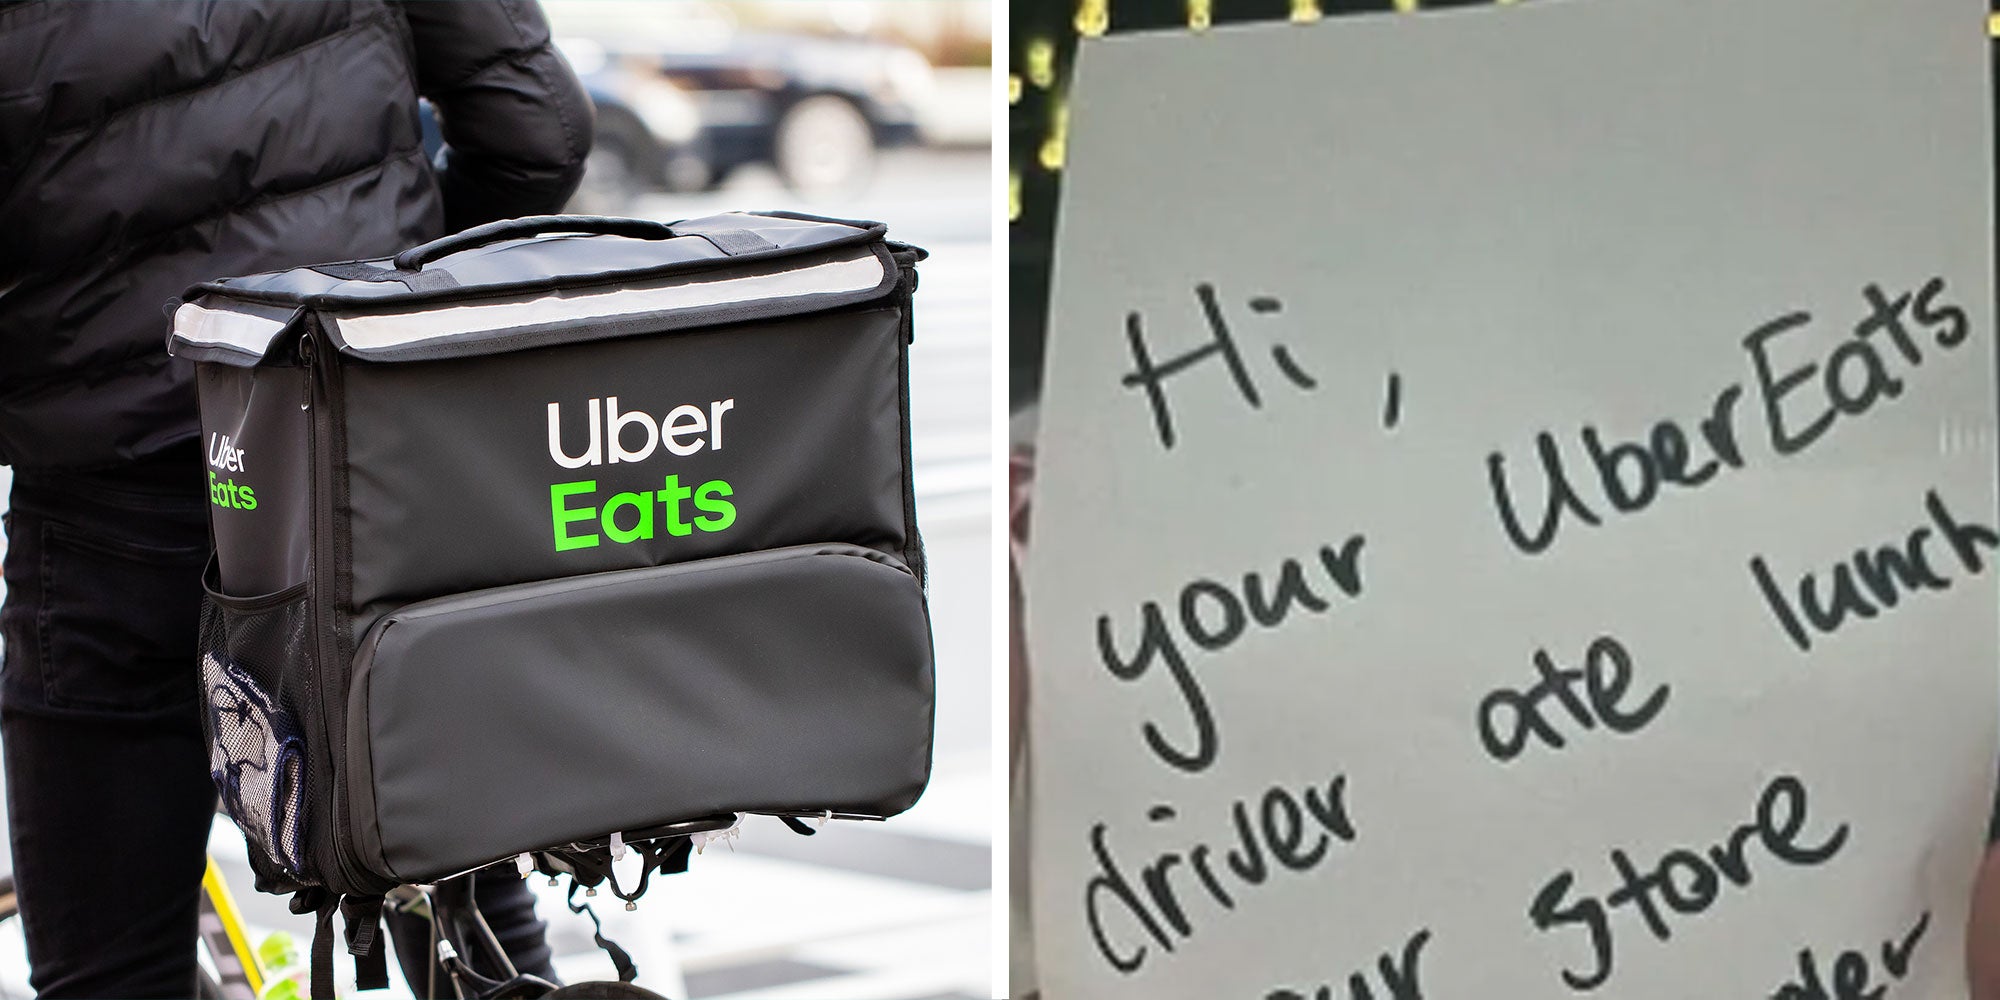 Uber
Eats
Uber
Eats
Hi,
your UberEats
driver ate lunch
store